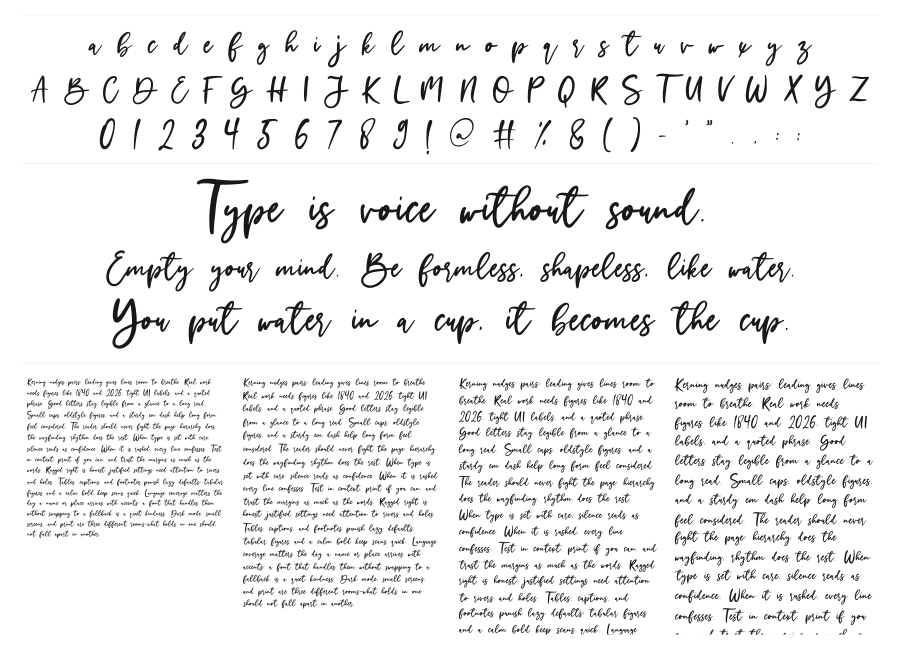 a b c d e f g h i j k l m n o p q r s t u v w x y z
A B C D E F G H I J K L M N O P Q R S T U V W X Y Z
0 1 2 3 4 5 6 7 8 9 ! @ # % & ( ) - ' " . , : ;
Type is voice without sound.
Empty your mind. Be formless, shapeless, like water.
You put water in a cup, it becomes the cup.
Kerning nudges pairs; leading gives lines room to breathe. Real work
needs figures like 1840 and 2026, tight UI labels, and a quoted
phrase. Good letters stay legible from a glance to a long read.
Small caps, oldstyle figures, and a sturdy em dash help long form
feel considered. The reader should never fight the page hierarchy does
the wayfinding, rhythm does the rest. When type is set with care,
silence reads as confidence. When it is rushed, every line confesses. Test
in context, print if you can, and trust the margins as much as the
words. Ragged right is honest; justified settings need attention to rivers
and holes. Tables, captions, and footnotes punish lazy defaults; tabular
figures and a calm bold keep scans quick. Language coverage matters the
day a name or place arrives with accents; a font that handles them
without swapping to a fallback is a quiet kindness. Dark mode, small
screens, and print are three different rooms-what holds in one should
not fall apart in another.
Kerning nudges pairs; leading gives lines room to breathe.
Real work needs figures like 1840 and 2026, tight UI
labels, and a quoted phrase. Good letters stay legible
from a glance to a long read. Small caps, oldstyle
figures, and a sturdy em dash help long form feel
considered. The reader should never fight the page hierarchy
does the wayfinding, rhythm does the rest. When type is
set with care, silence reads as confidence. When it is rushed,
every line confesses. Test in context, print if you can, and
trust the margins as much as the words. Ragged right is
honest; justified settings need attention to rivers and holes.
Tables, captions, and footnotes punish lazy defaults;
tabular figures and a calm bold keep scans quick. Language
coverage matters the day a name or place arrives with
accents; a font that handles them without swapping to a
fallback is a quiet kindness. Dark mode, small screens,
and print are three different rooms-what holds in one
should not fall apart in another.
Kerning nudges pairs; leading gives lines room to
breathe. Real work needs figures like 1840 and
2026, tight UI labels, and a quoted phrase.
Good letters stay legible from a glance to a
long read. Small caps, oldstyle figures, and a
sturdy em dash help long form feel considered.
The reader should never fight the page hierarchy
does the wayfinding, rhythm does the rest.
When type is set with care, silence reads as
confidence. When it is rushed, every line
confesses. Test in context, print if you can, and
trust the margins as much as the words. Ragged
right is honest; justified settings need attention
to rivers and holes. Tables, captions, and
footnotes punish lazy defaults; tabular figures
and a calm bold keep scans quick. Language
Kerning nudges pairs; leading gives lines
room to breathe. Real work needs
figures like 1840 and 2026, tight UI
labels, and a quoted phrase. Good
letters stay legible from a glance to a
long read. Small caps, oldstyle figures,
and a sturdy em dash help long form
feel considered. The reader should never
fight the page hierarchy does the
wayfinding, rhythm does the rest. When
type is set with care, silence reads as
confidence. When it is rushed, every line
confesses. Test in context, print if you